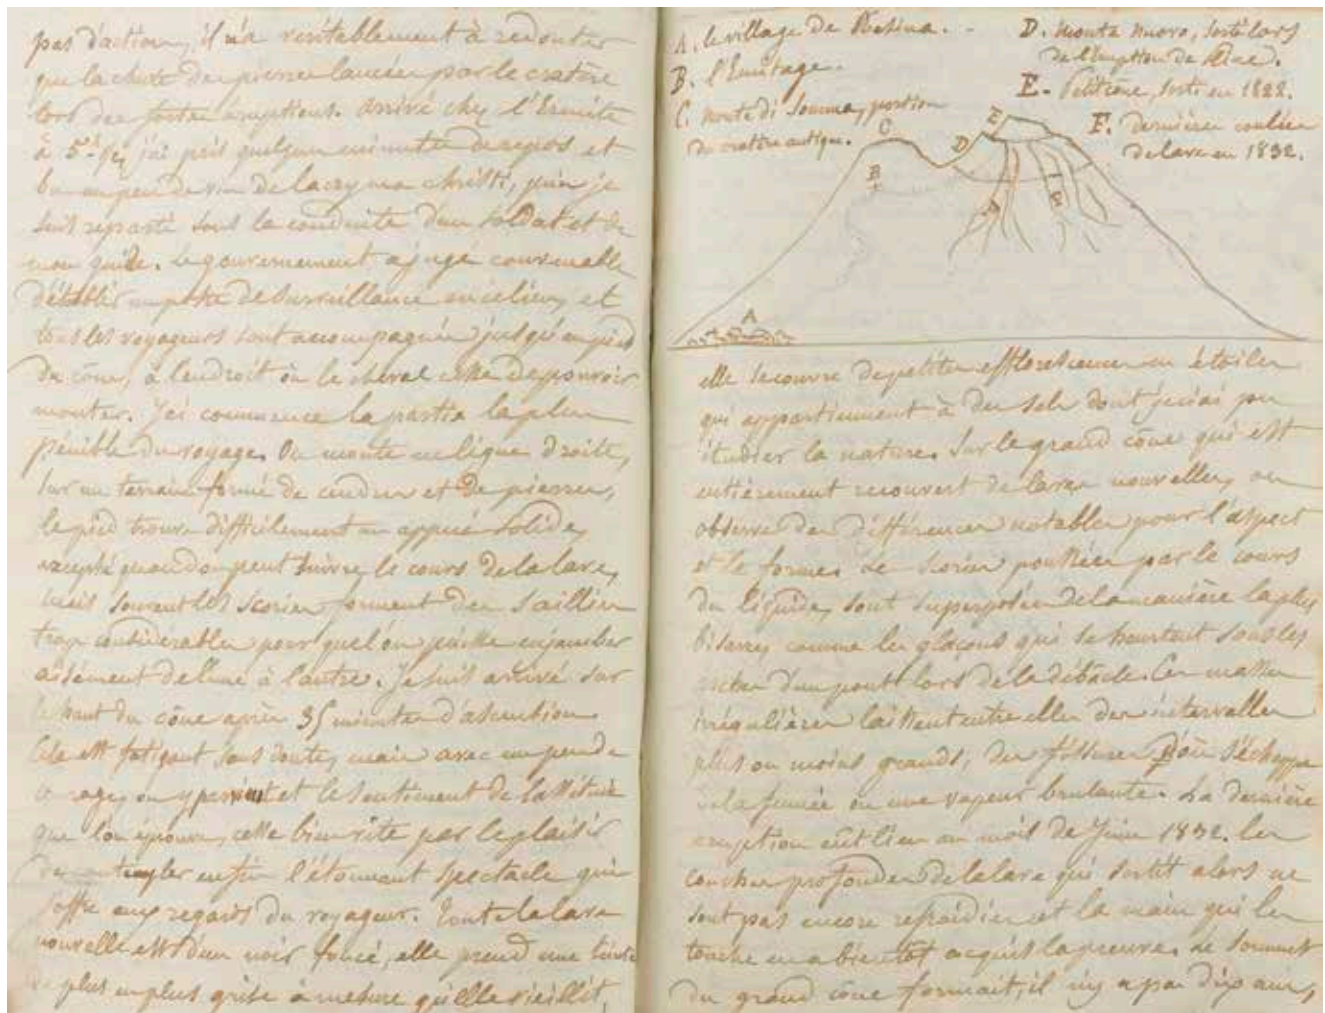 pas d'action, il n'a veritablement à redouter
que la chute de pierres lancées par le cratère
lors des fortes éruptions. arrivé chez l'Ermite
à 5h ½, j'ai pris quelques minutes de repos et
bu un peu de vin de lacryma christi, puis je
suis reparti sous la conduite d'un soldat et de
mon guide. Le gouvernement a jugé convenable
d'établir un poste de surveillance en ce lieu, et
tous les voyageurs sont accompagnés jusqu'au pied
du cône, à l'endroit où le cheval cesse de pouvoir
monter. J'ai commencé la partie la plus
pénible du voyage. On monte en ligne droite,
sur un terrain formé de cendres et de pierres,
le pied trouve difficilement un appui solide,
excepté quand on peut suivre le cours de la lave,
mais souvent les scories forment des saillies
trop considérables pour que l'on puisse enjamber
aisément de l'une à l'autre. Je suis arrivé sur
le haut du cône après 35 minutes d'ascention.
Cela est fatigant sans doute, mais avec un peu de
courage, on y parvient et le sentiment de lassitude
que l'on éprouve, cesse bien vite par le plaisir
de contempler enfin l'étonnant spectacle qui
s'offre aux regards du voyageur. Toute la lave
nouvelle est d'un noir foncé, elle prend une teinte
de plus en plus grise à mesure qu'elle vieillit,
A. le village de Resina.
B. l'Ermitage.
C. Monte di Somma, portion
du cratère antique.
D. Monte nuovo, sorti lors
de l'éruption de
E. Petit cône, sorti en 1822.
F. dernières coulées
de lave en 1832.
C
D
E
B
F
A
elle se couvre de petites efflorescences en étoiles
qui appartiennent à des sels dont je n'ai pu
étudier la nature. Sur le grand cône qui est
entièrement recouvert de laves nouvelles, on
observe des différences notables pour l'aspect
et la forme. Les scories poussées par le cours
du liquide, sont superposées de la manière la plus
bisarre, comme les glaçons qui se heurtent sous les
arches d'un pont lors de la débâcle. Ces masses
irrégulières laissent entre elles des intervalles
plus ou moins grands, des fissures d'où s'échappe
de la fumée ou une vapeur brulante. La dernière
eruption eût lieu au mois de Juin 1832. les
couches profondes de la lave qui sortit alors ne
sont pas encore refroidies et la main qui les
touche en a bientôt acquis la preuve. Le sommet
du grand cône formait, il n'y a pas dix ans,